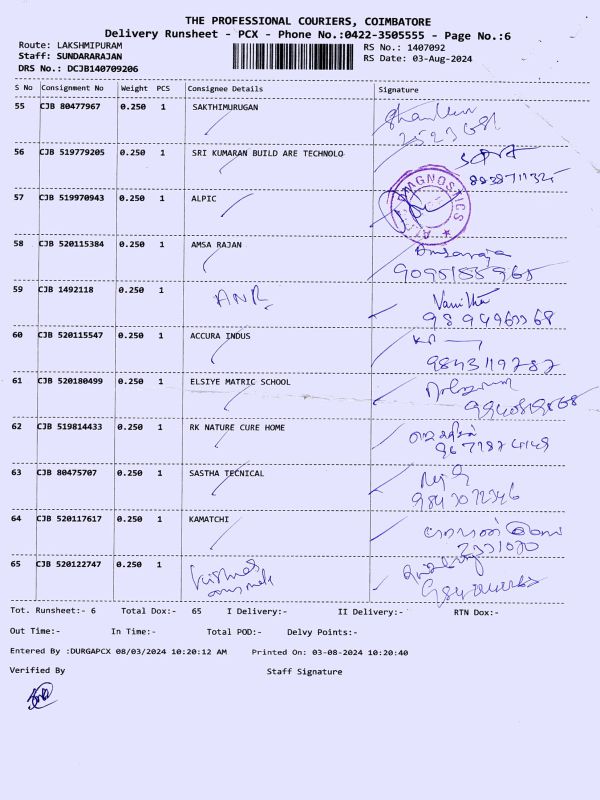 THE PROFESSIONAL COURIERS, COIMBATORE
Delivery Runsheet - PCX - Phone No.:0422-3505555 - Page No.:6
Route: LAKSHMIPURAM
RS No.: 1407092
Staff: SUNDARARAJAN
RS Date: 03-Aug-2024
DRS No.: DCJB140709206
S No Consignment No Weight PCS Consignee Details Signature
55 CJB 80477967 0.250 1 SAKTHIMURUGAN
56 CJB 519779205 0.250 1 SRI KUMARAN BUILD ARE TECHNOLO
57 CJB 519970943 0.250 1 ALPIC
DIAGNOSTICS
58 CJB 520115384 0.250 1 AMSA RAJAN Amsaraja
9095155965
59 CJB 1492118 0.250 1 ANR Vanitha
60 CJB 520115547 0.250 1 ACCURA INDUS
9843119787
61 CJB 520180499 0.250 1 ELSIYE MATRIC SCHOOL
62 CJB 519814433 0.250 1 RK NATURE CURE HOME
63 CJB 80475707 0.250 1 SASTHA TECNICAL
9843072346
64 CJB 520117617 0.250 1 KAMATCHI
65 CJB 520122747 0.250 1
Tot. Runsheet:- 6 Total Dox:- 65 I Delivery:- II Delivery:- RTN Dox:-
Out Time:- In Time:- Total POD:- Delvy Points:-
Entered By :DURGAPCX 08/03/2024 10:20:12 AM Printed On: 03-08-2024 10:20:40
Verified By Staff Signature